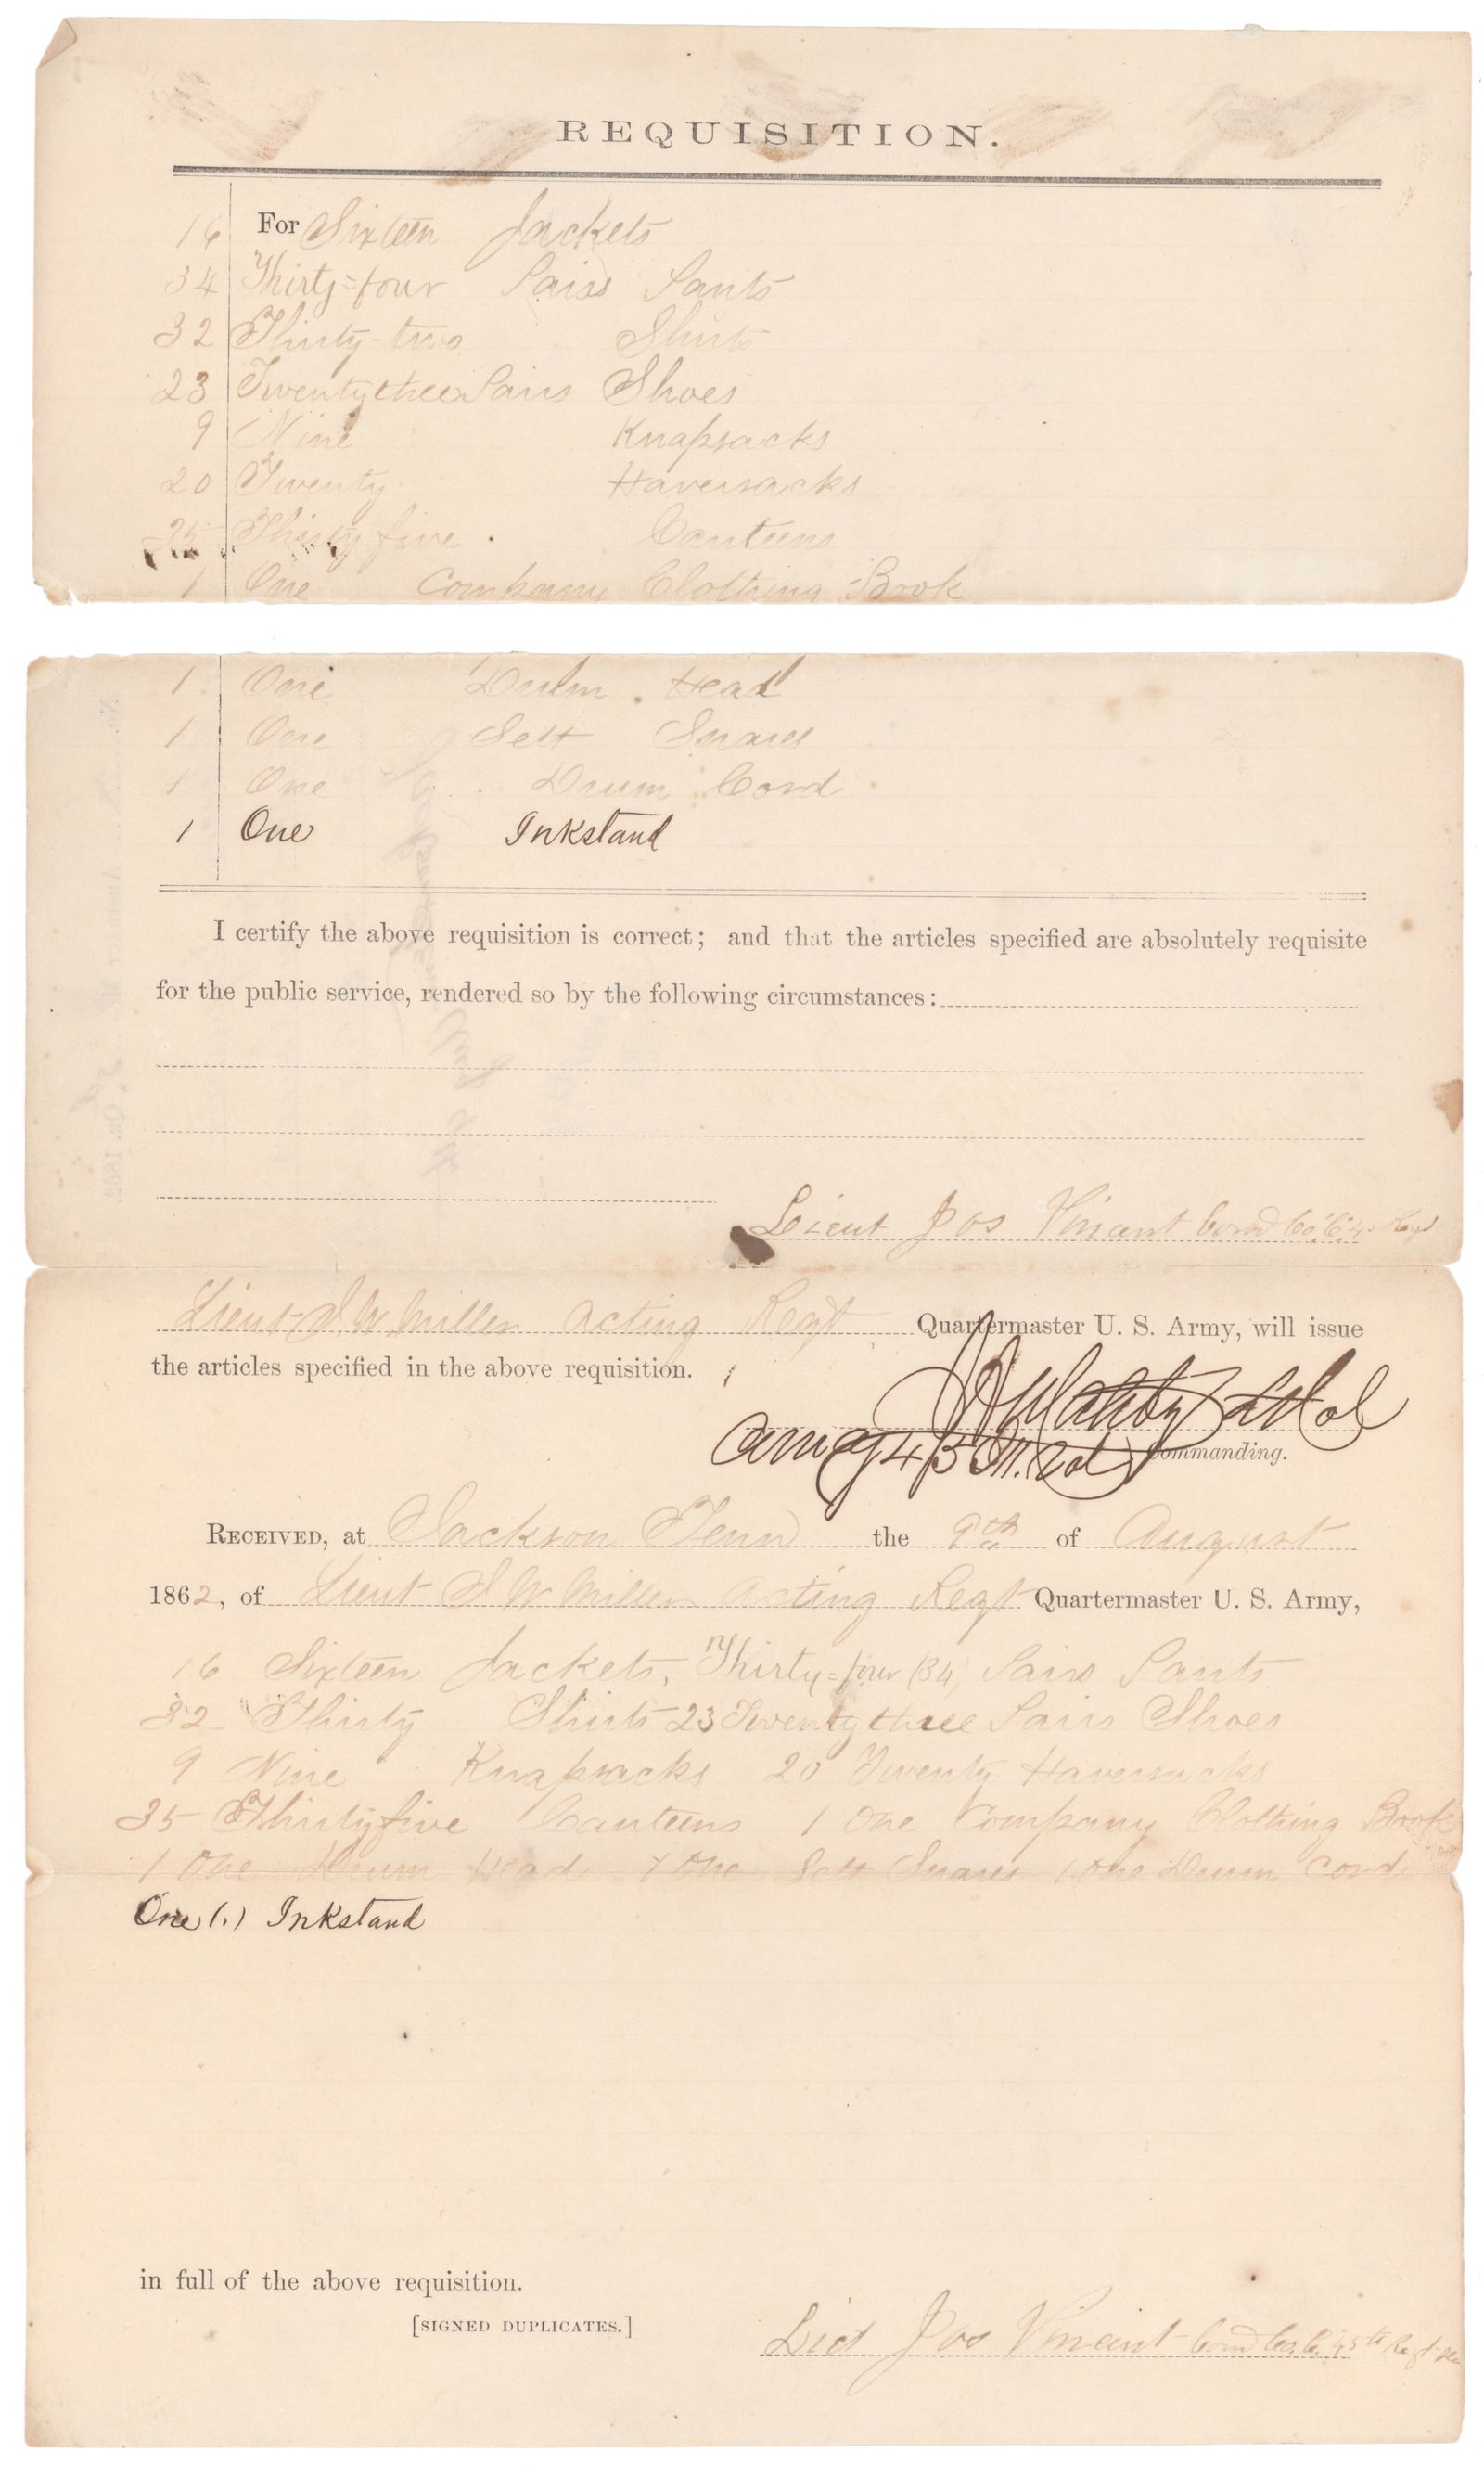 REQUISITION.
16 For Sixteen Jackets
34 Thirty=four Pairs Pants
32 Thirty-two Shirts
23 Twentythree Pairs Shoes
9 Nine Knapsacks
20 Twenty Haversacks
35 Thirty five Canteens
1 One Company Clothing Book
1 One Drum Head
1 One Sett Snares
1 One Drum Cord
1 One Inkstand
I certify the above requisition is correct; and that the articles specified are absolutely requisite
for the public service, rendered so by the following circumstances:
Lieut Jos Vinant Comd Co. C. 45 Regt
Lieut J. W. Miller Acting Regt Quartermaster U. S. Army, will issue
the articles specified in the above requisition.
Lt Col
Comdg 45 Ill. Vol Commanding.
RECEIVED, at Jackson Tenn the 9th of August
1862, of Lieut J W Miller Acting Regt Quartermaster U. S. Army,
16 Sixteen Jackets, Thirty=four (34) Pairs Pants
32 Thirty Shirts 23 Twentythree Pairs Shoes
9 Nine Knapsacks 20 Twenty Haversacks
35 Thirtyfive Canteens 1 One Company Clothing Book
1 One Drum Head 1 One Sett Snares 1 One Drum Cord
One (1) Inkstand
in full of the above requisition.
[SIGNED DUPLICATES.]
Liet Jos Vincent Comd Co. C. 45th Regt